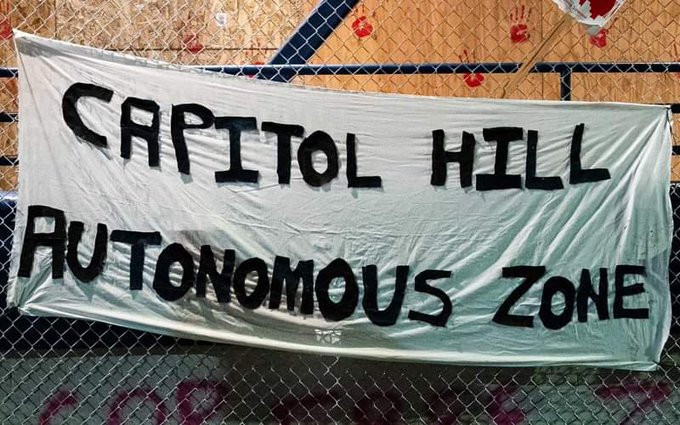 CAPITOL HILL
AUTONOMOUS ZONE